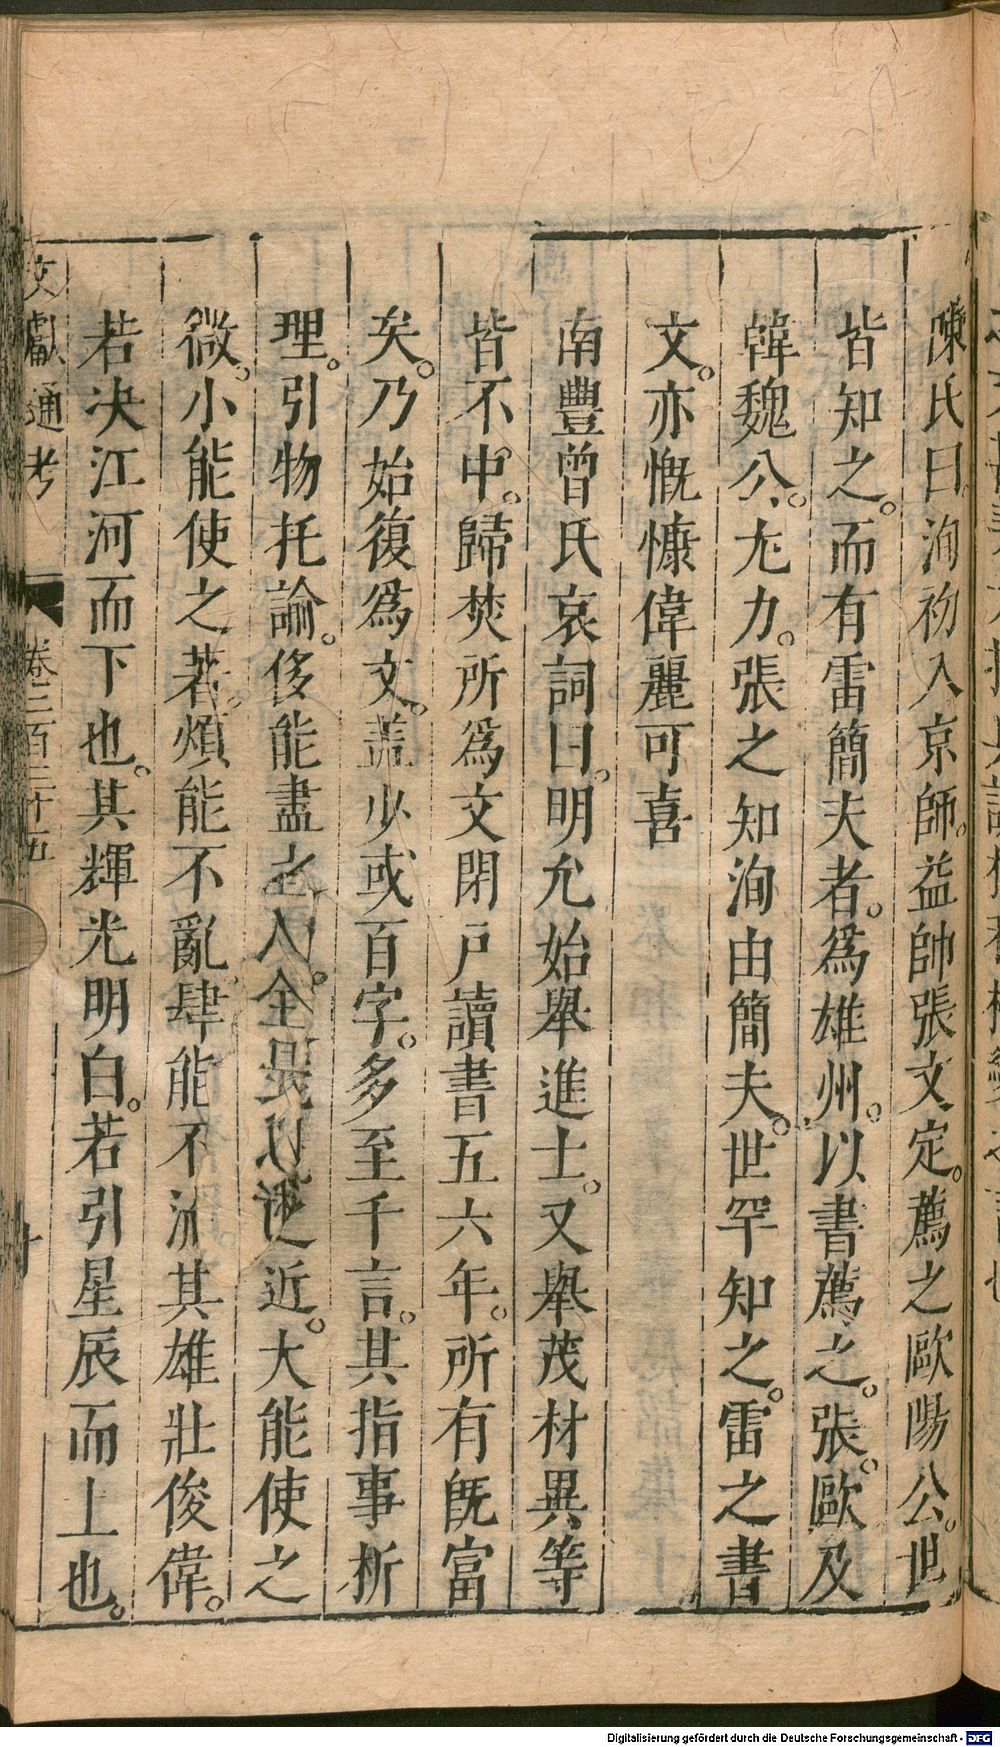 陳氏曰洵初入京師益帥張文定薦之歐陽公世
皆知之而有雷簡夫者爲雄州以書薦之張歐及
韓魏公尤力張之知洵由簡夫世罕知之雷之書
文亦慨慷偉麗可喜
南豐曾氏哀詞曰明允始舉進士又舉茂材異等
皆不中歸焚所爲文閉戸讀書五六年所有旣富
矣乃始復爲文蓋少或百字多至千言其指事析
理引物托論侈能盡之
近大能使之
微小能使之著煩能不亂肆能不流其雄壯俊偉
若決江河而下也其輝光明白若引星辰而上也
文獻通考 卷二百三十五
Digitalisierung gefördert durch die Deutsche Forschungsgemeinschaft - DFG